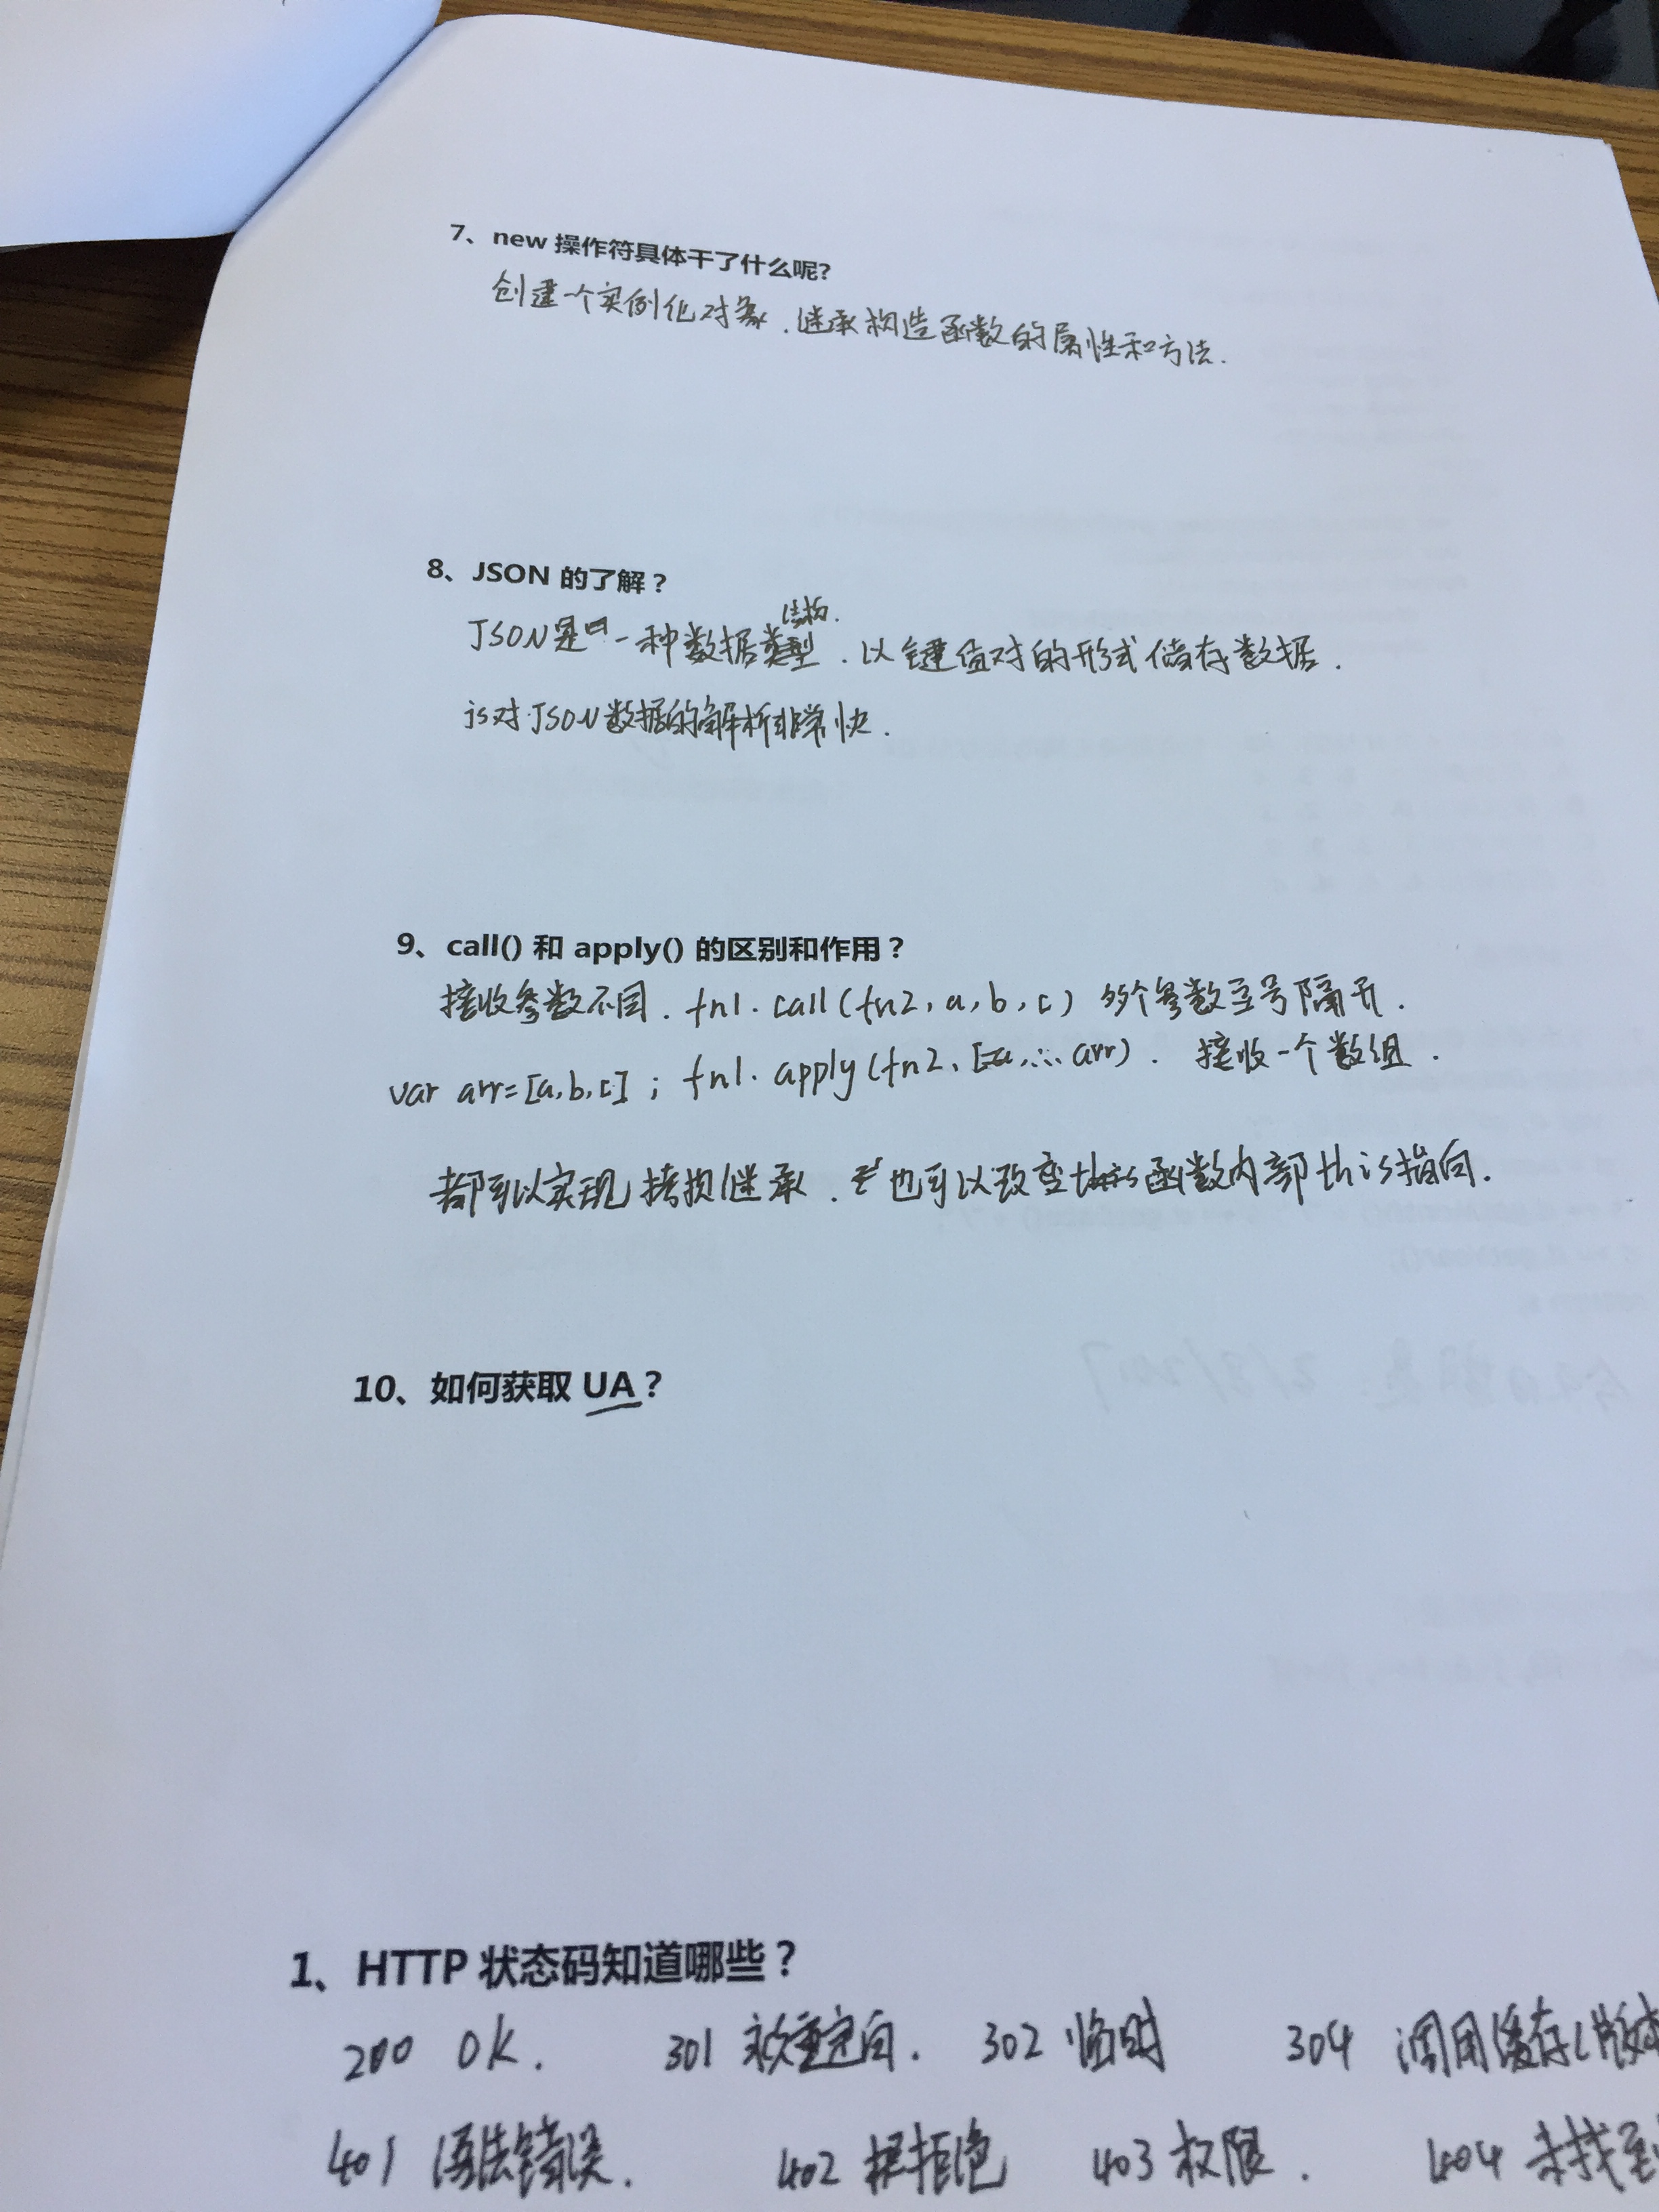 7、new 操作符具体干了什么呢?
创建一个实例化对象.继承构造函数的属性和方法.
8、JSON 的了解？
结构.
JSON是一种数据类型.以键值对的形式储存数据.
js对JSON数据的解析非常快.
9、call() 和 apply() 的区别和作用？
接收参数不同. fn1.call(fn2,a,b,c) 多个参数逗号隔开.
var arr=[a,b,c]; fn1.apply(fn2, arr). 接收一个数组.
都可以实现拷贝继承.也可以改变函数内部this指向.
10、如何获取 UA？
1、HTTP 状态码知道哪些？
200 OK. 301 重定向. 302 临时 304 调用缓存(版本
401 语法错误. 402 拒绝 403 权限. 404 未找到